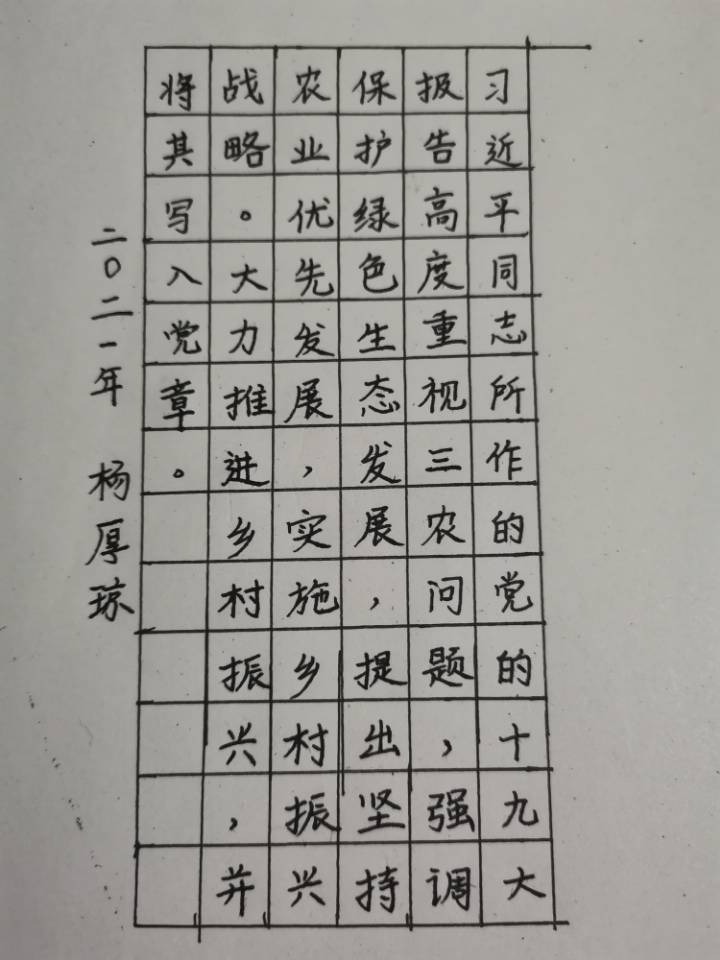 习近平同志所作的党的十九大
报告高度重视三农问题，强调
保护绿色生态发展，提出坚持
农业优先发展，实施乡村振兴
战略。大力推进乡村振兴，并
将其写入党章。
二〇二一年 杨厚琼